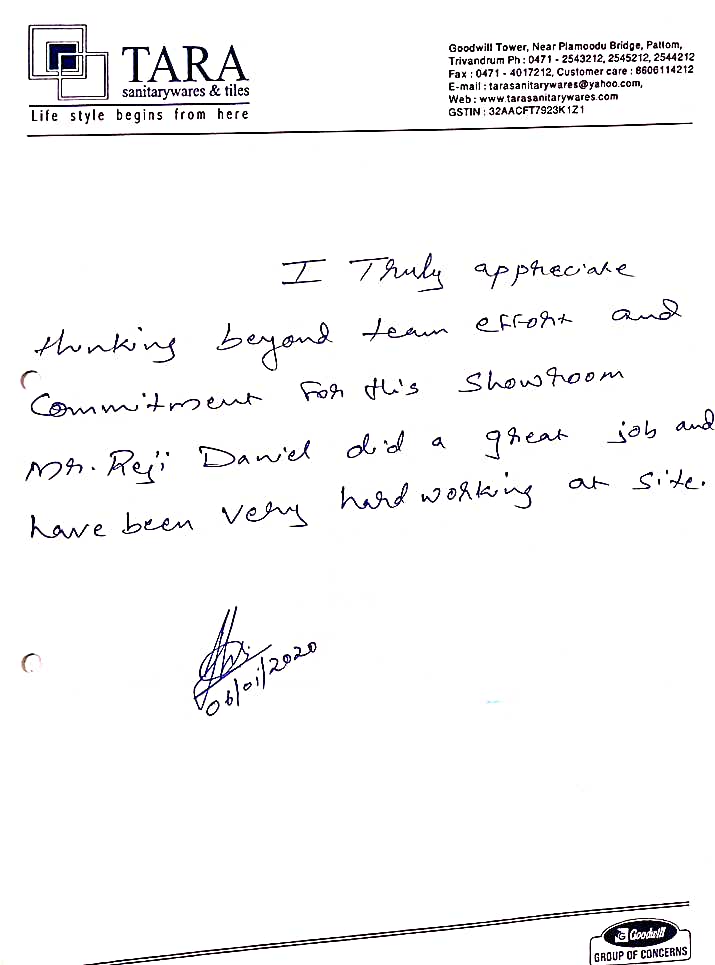 TARA
sanitarywares & tiles
Life style begins from here
Goodwill Tower, Near Plamoodu Bridge, Pattom,
Trivandrum Ph : 0471 - 2543212, 2545212, 2544212
Fax : 0471 - 4017212, Customer care : 8606114212
E-mail : tarasanitarywares@yahoo.com,
Web : www.tarasanitarywares.com
GSTIN : 32AACFT7923K1Z1
I Truly appreciate
thinking beyond team effort and
Commitment For this Showroom
Mr. Reji Daniel did a great job and
have been very hard working at site.
06/01/2020
G Goodwill
GROUP OF CONCERNS